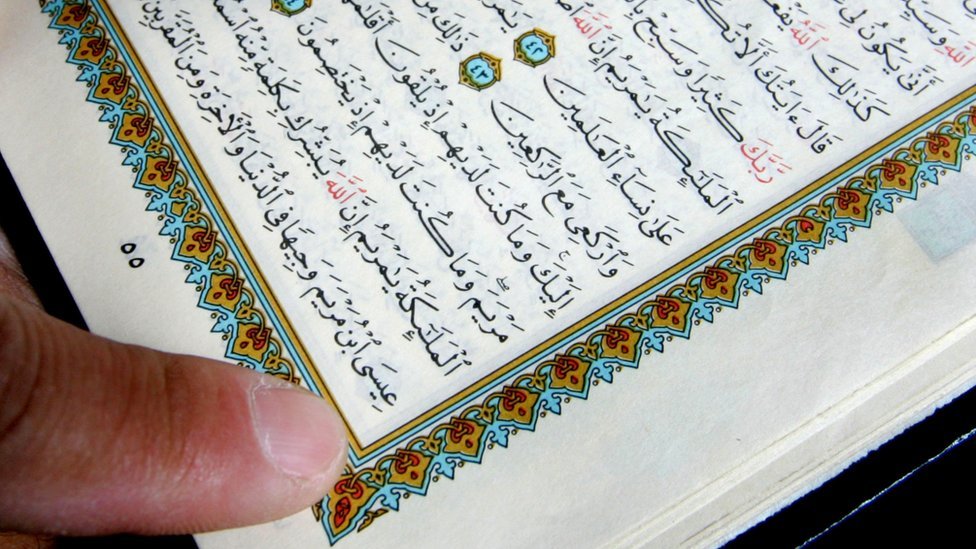 ٱللَّهِ وَسَيِّدًا
أَنَّىٰ يَكُونُ لِى
كَذَٰلِكَ ٱللَّهُ يَفْعَلُ
قَالَ ءَايَتُكَ أَلَّا تُكَلِّمَ
رَّبَّكَ كَثِيرًا وَسَبِّحْ
ٱلْمَلَـٰٓئِكَةُ يَـٰمَرْيَمُ إِنَّ ٱللَّهَ
عَلَىٰ نِسَآءِ ٱلْعَـٰلَمِينَ ٤٢ يَـٰمَرْيَمُ
وَٱرْكَعِى مَعَ ٱلرَّٰكِعِينَ ٤٣ ذَٰلِكَ مِنْ
إِلَيْكَ وَمَا كُنتَ لَدَيْهِمْ إِذْ يُلْقُونَ أَقْلَـٰمَهُمْ
مَرْيَمَ وَمَا كُنتَ لَدَيْهِمْ إِذْ يَخْتَصِمُونَ ٤٤
ٱلْمَلَـٰٓئِكَةُ يَـٰمَرْيَمُ إِنَّ ٱللَّهَ يُبَشِّرُكِ بِكَلِمَةٍ مِّنْهُ ٱسْمُهُ
عِيسَى ٱبْنُ مَرْيَمَ وَجِيهًا فِى ٱلدُّنْيَا وَٱلْـَٔاخِرَةِ وَمِنَ ٱلْمُقَرَّبِينَ
٥٥